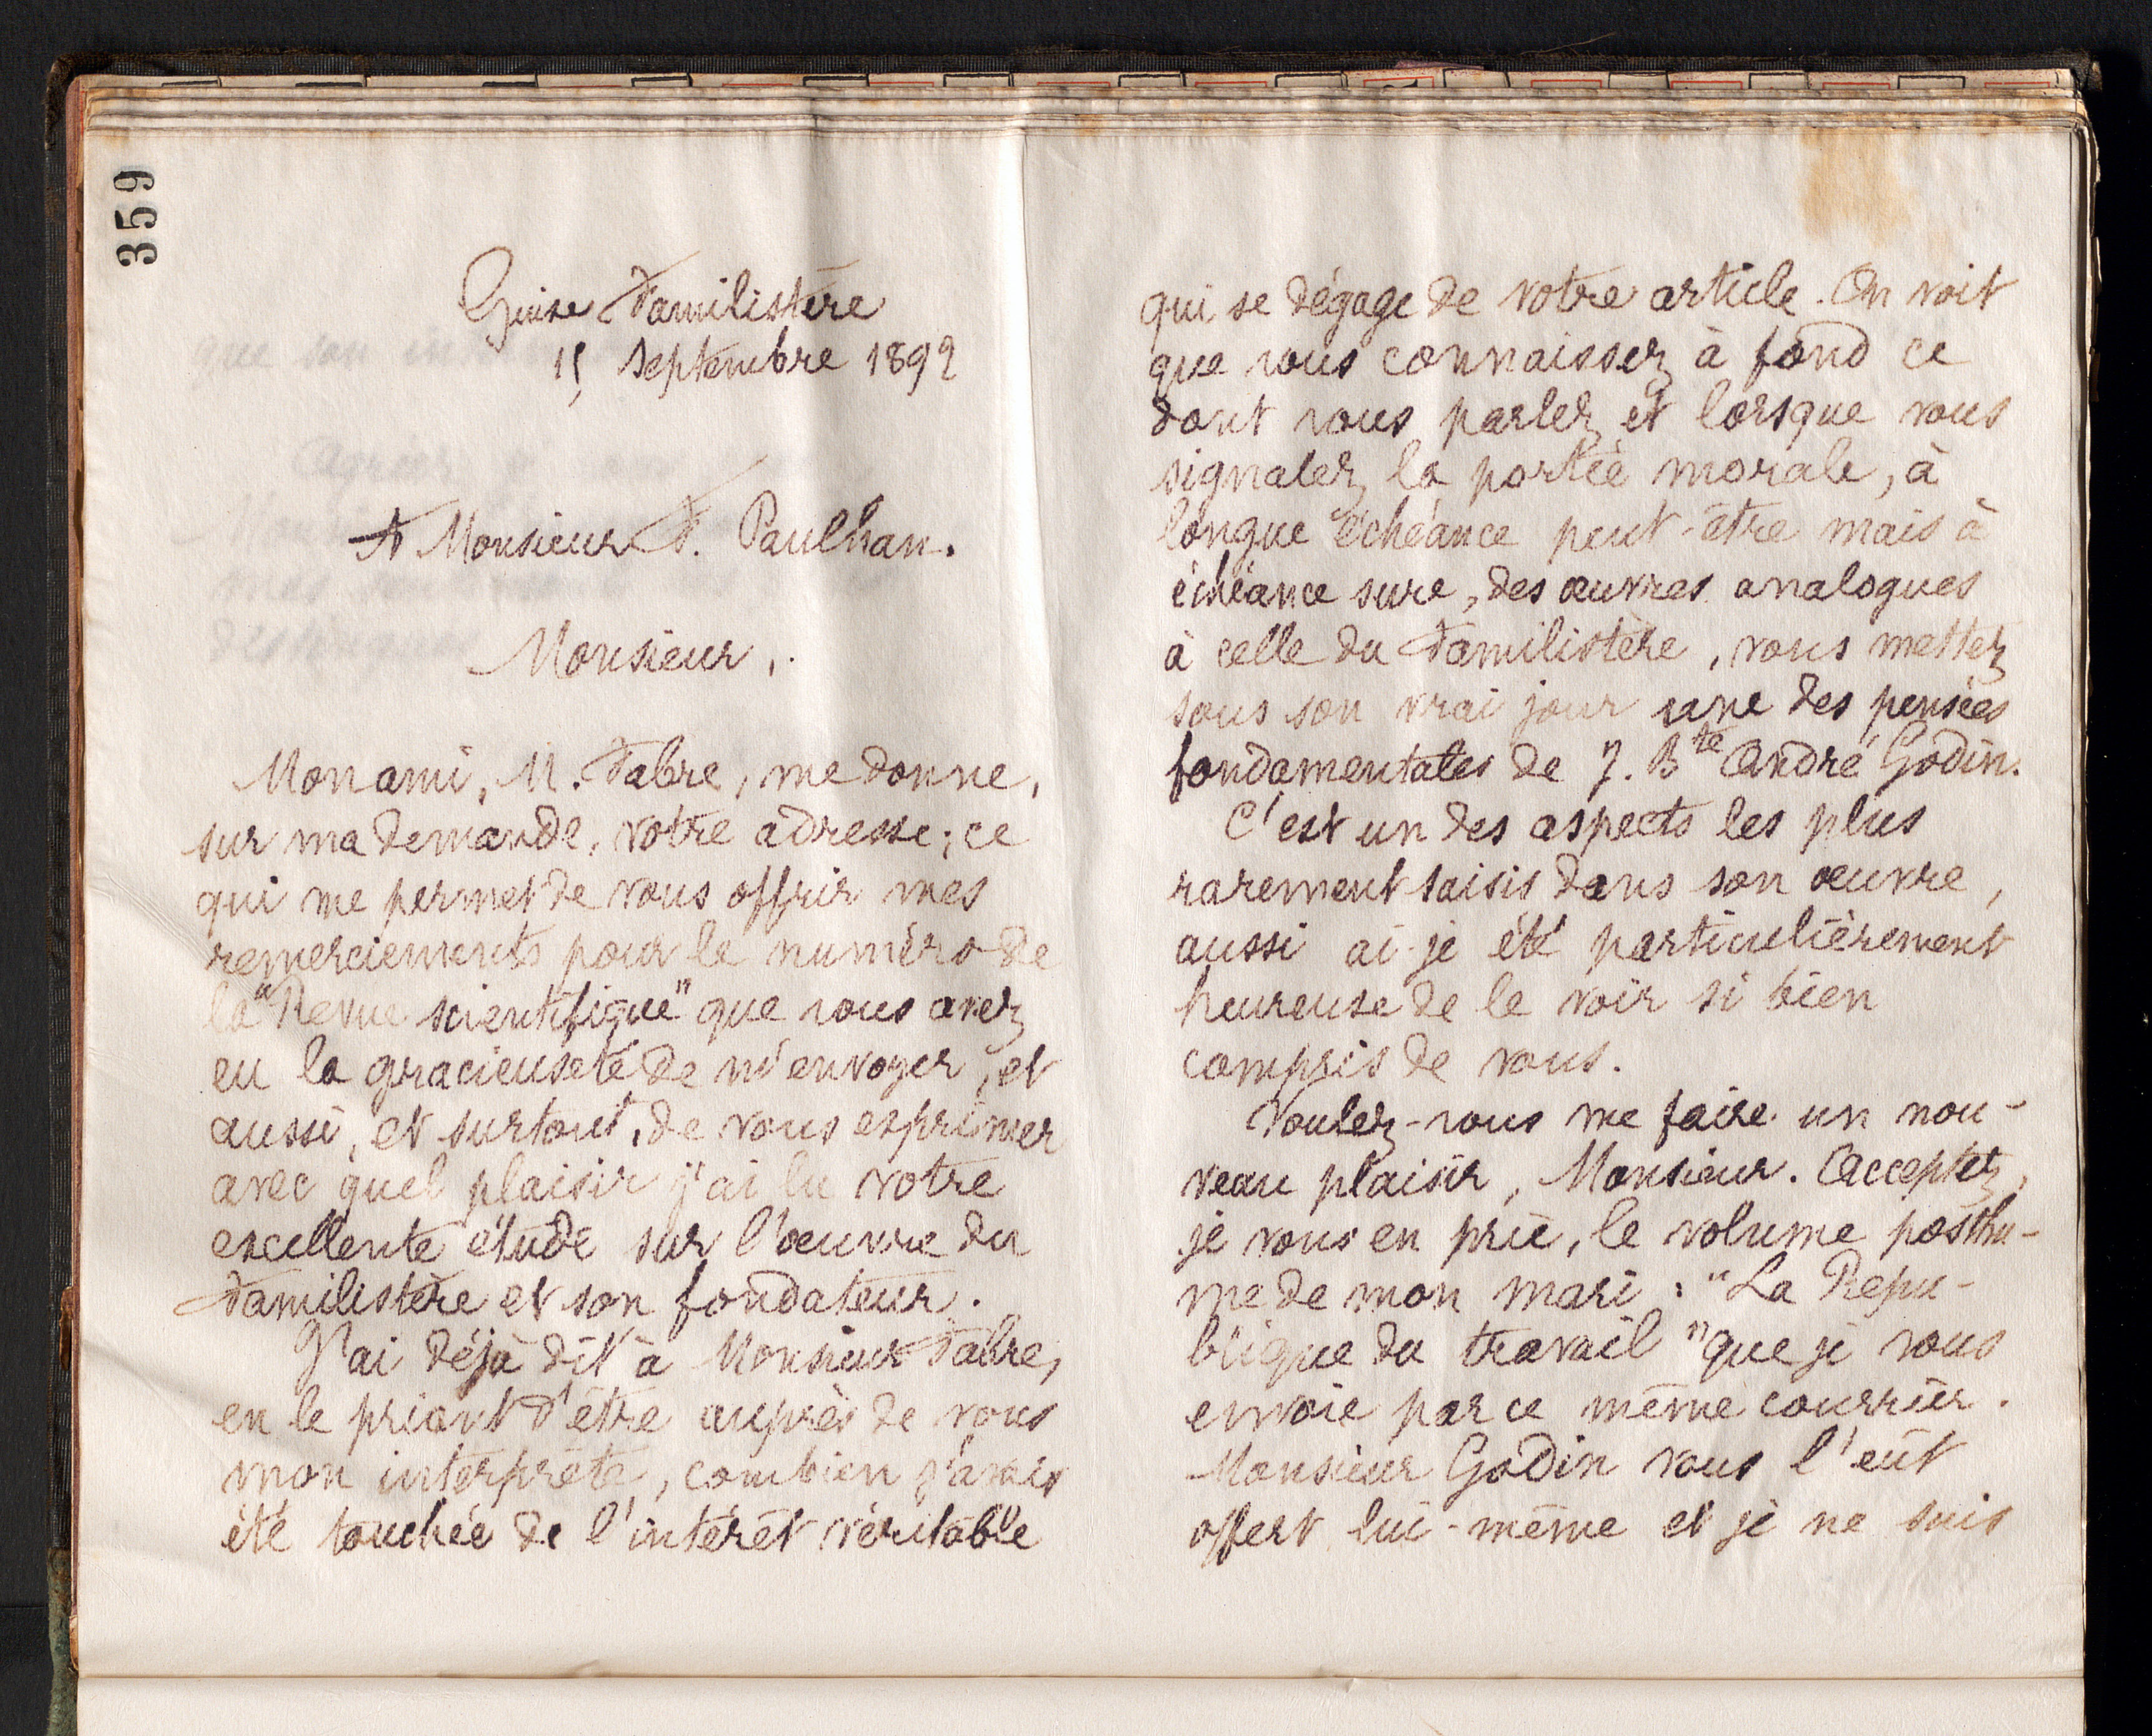 359
Guise Familistère
15 septembre 1892
A Monsieur F. Paulhan.
Monsieur,
Mon ami, M. Fabre, me donne,
sur ma demande, votre adresse; ce
qui me permet de vous offrir mes
remerciements pour le numéro de
la "Revue scientifique" que vous avez
eu la gracieuseté de m'envoyer, et
aussi, et surtout, de vous exprimer
avec quel plaisir j'ai lu votre
excellente étude sur l'œuvre du
Familistère et son fondateur.
J'ai déjà dit à Monsieur Fabre,
en le priant d'être auprès de vous
mon interprète, combien j'avais
été touchée de l'intérêt véritable
qui se dégage de votre article. On voit
que vous connaissez à fond ce
dont vous parlez et lorsque vous
signalez la portée morale, à
longue échéance peut-être mais à
échéance sure, des œuvres analogues
à celle du Familistère, vous mettez
sous son vrai jour une des pensées
fondamentales de J. Bte André Godin.
C'est un des aspects les plus
rarement saisis dans son œuvre,
aussi ai-je été particulièrement
heureuse de le voir si bien
compris de vous.
Voulez-vous me faire un nou-
veau plaisir, Monsieur. Acceptez,
je vous en prie, le volume posthu-
me de mon mari : "La Répu-
blique du travail" que je vous
envoie par ce même courrier.
Monsieur Godin vous l'eût
offert lui-même et je ne suis